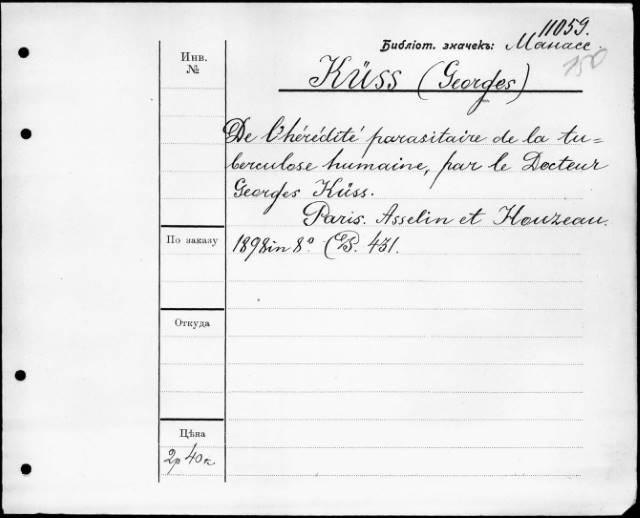 11059.
Библіот. значекъ: Манасс.
150
Инв.
№
Küss (Georges)
De l'hérédité parasitaire de la tu=
berculose humaine, par le Docteur
Georges Küss.
Paris. Asselin et Houzeau.
По заказу
1898 in 8° (P. 431.
Откуда
Цѣна
2р 40к